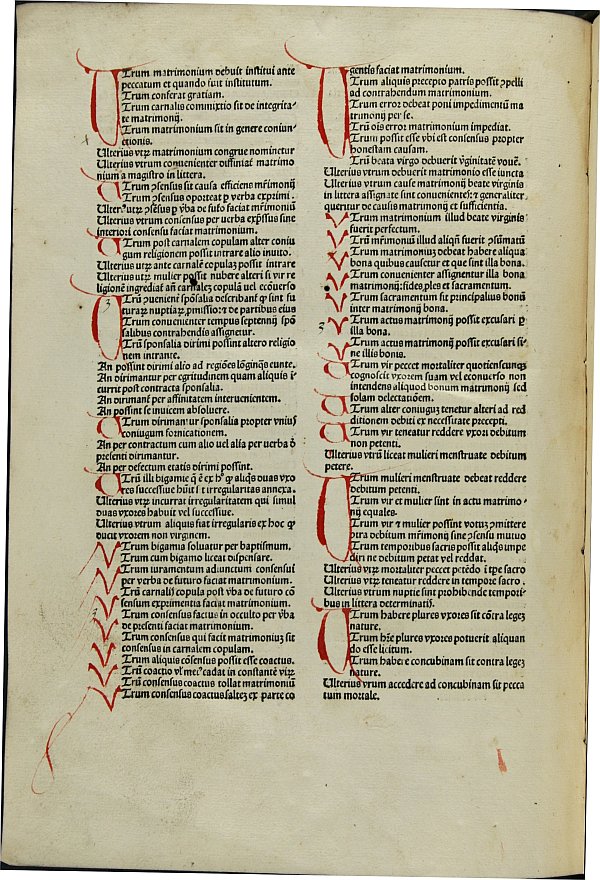 UTrum matrimonium debuit institui ante
peccatum et quando fuit institutum.
Trum conferat gratiam.
Trum carnalis commixtio sit de integrita-
te matrimonij.
Trum matrimonium sit in genere coniun-
ctionis.
Ulterius vtrꝫ matrimonium congrue nominetur
Ulterius vtrum conuenienter diffiniat matrimo
nium a magistro in littera.
UTrum ꝯsensus sit causa efficiens mr̄imonij
Trum ꝯsensus oporteat ꝑ verba exprimi.
Ulteriꝰ vtꝫ ꝯsēsus ꝑ ỽba de futo faciat mr̄imoniū
Ulterius vtrum consensus per verba exp̄ssus sine
interiori consensu faciat matrimonium.
UTrum post carnalem copulam alter coniu
gum religionem possit intrare alio inuito.
Ulterius vtrꝫ ante carnalē copulaꝫ possit intrare
Ulterius vtrꝫ mulier possit nubere alteri si vir re
ligionē ingrediat̄ an̄ carnalēꝫ copulā vel ecōuerso
UTrū ꝯuenienti spōsalia describant̄ ꝙ sint fu
turaꝝ nuptiaꝝ ꝓmissio: ⁊ de partibus eius
Trum conuenienter tempus septennij spō
salibus contrahendis assignetur.
Trū spōsalia dirimi possint altero religio
nem intrante.
An possint dirimi alio ad regiōes lōginq̄s eunte.
An dirimantur per egritudinem quam aliquis ī
currit post contracta sponsalia.
An dirimant̄ per affinitatem interuenientem.
An possint se inuicem absoluere.
UTrum dirimantur sponsalia propter vniꝰ
coniugum fornicationem.
An per contractum cum alio vel alia per verba ð
presenti dirimantur.
An per defectum etatis dirimi possint.
UTrū illi bigamie q̄ ē ex hͦ ꝙ aliq̇s duas vxo
res successiue hūit sit irregularitas annexa.
Ulterius vtꝫ incurrat irregularitatem qui simul
duas vxores habuit vel successiue.
Ulterius vtrum aliquis fiat irregularis ex hoc ꝙ
ducit vxorem non virginem.
UTrum bigamia soluatur per baptismum.
UTrum cum bigamo liceat dispensare.
UTrum iuramentum adiunctum consensui
per verba de futuro faciat matrimonium.
UTrū carnalis copula post ỽba de futuro cō
sensum exprimentia faciat matrimonium.
UTrum consensus factus in occulto per ỽba
de presenti faciat matrimonium.
UTrum consensus qui facit matrimoniuꝫ sit
consensus in carnalem copulam.
UTrum aliquis cōsensus possit esse coactus.
UTrū coactio vl̄ metꝰ cadat in constantē virꝫ
UTrū consensus coactus tollat matrimoniū
UTrum consensus coactus salteꝫ ex parte co
gentis faciat matrimonium.
UTrum aliquis precepto patris possit ꝯpelli
ad contrahendum matrimonium.
Trum error debeat poni impedimentū ma
trimonij per se.
Trū oīs error matrimonium impediat.
Trum possit esse vbi est consensus propter
honestam causam.
Trū beata virgo debuerit ỽginitatē vouē.
Ulterius vtrum debuerit matrimonio esse iuncta
Ulterius vtrum cause matrimonij beate virginis
in littera assignate sint conuenientes: ⁊ generaliter
queritur de causis matrimonij et sufficientia.
UTrum matrimonium illud beate virginis
fuerit perfectum.
UTrū mr̄imoniū illud aliqn̄ fuerit ꝯsūmatū
UTrum matrimonium debeat habere aliqua
bona quibus causetur et que sint illa bona.
UTrum conuenienter assignentur illa bona
matrimonij: fides ꝓles et sacramentum.
UTrum sacramentum sit principalius bonū
inter matrimonij bona.
UTrum actus matrimonij possit excusari ꝑ
illa bona.
UTrum actus matrimonij possit excusari si-
ne illis bonis.
UTrum vir peccet mortaliter quotienscunqꝫ
cognoscit vxorem suam vel econuerso non
intendens aliquod bonum matrimonij sed
solam delectationem.
UTrum alter coniuguꝫ tenetur alteri ad red
ditionem debiti ex necessitate precepti.
UTrum vir teneatur reddere vxori debitum
non petenti.
Ulterius vtrū liceat mulieri menstruate debitum
petere.
UTrum mulieri menstruate debeat reddere
debitum petenti.
Trum vir et mulier sint in actu matrimo-
nij equales.
Trum vir ⁊ mulier possint votuꝫ ꝓmittere
ꝯtra debitum mr̄imonij sine ꝯsensu mutuo
Trum temporibus sacris possit aliq̇s impe
diri ne debitum petat vel reddat.
Ulterius vtrꝫ mortaliter peccet petēdo ī tp̄e sacro
Ulterius vtrꝫ teneatur reddere in tempore sacro.
Ulterius vtrum nuptie sint prohibende tempori-
bus in littera determinatis.
UTrum habere plures vxores sit cōtra legeꝫ
nature.
Trum hr̄e plures vxores potuerit aliquan
do esse licitum.
Trum habere concubinam sit contra legeꝫ
nature.
Ulterius vtrum accedere ad concubinam sit pecca
tum mortale.